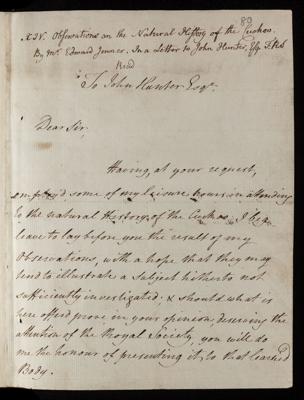 89
XIV. Observations on the Natural History of the Cuckoo.
By Mr. Edward Jenner. In a Letter to John Hunter, Esq. F.R.S
Read
To John Hunter Esqr.
Dear Sir,
Having, at your request,
employ'd some of my leisure hours in attending
to the natural History of the Cuckoo, I beg
leave to lay before you the result of my
Observations, with a hope that they may
tend to illustrate a Subject hitherto not
sufficiently investigated; & should what is
here offer'd prove in your opinion deserving the
attention of the Royal Society, you will do
me the honour of presenting it to that learned
Body.